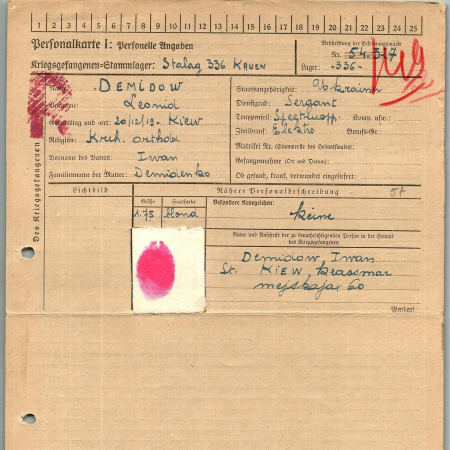 1 2 3 4 5 6 7 8 9 10 11 12 13 14 15 16 17 18 19 20 21 22 23 24 25
Personalkarte I: Personelle Angaben
Beschriftung der Erkennungsmarke
Kriegsgefangenen-Stammlager: Stalag 336 KAUEN
Nr. 54.517
Lager: -336-
Des Kriegsgefangenen
Name: DEMIDOW
Staatsangehörigkeit: Ukrain
Vorname: Leonid
Dienstgrad: Sergant
Geburtstag und -ort: 20/12/19- KIEW
Truppenteil: Komp. usw.:
Religion: Krch. orthdox
Zivilberuf: Elektro Berufs-Gr.:
Matrikel Nr. (Stammrolle des Heimatstaates):
Vorname des Vaters: Iwan
Gefangennahme (Ort und Datum):
Familienname der Mutter: Demidenko
Ob gesund, krank, verwundet eingeliefert:
Lichtbild
Nähere Personalbeschreibung
Größe Haarfarbe Besondere Kennzeichen:
1.75 blond keine
Name und Anschrift der zu benachrichtigenden Person in der Heimat
des Kriegsgefangenen
Demidow, Iwan
St. KIEW, Krassnar
mejskaja 60
Wenden!